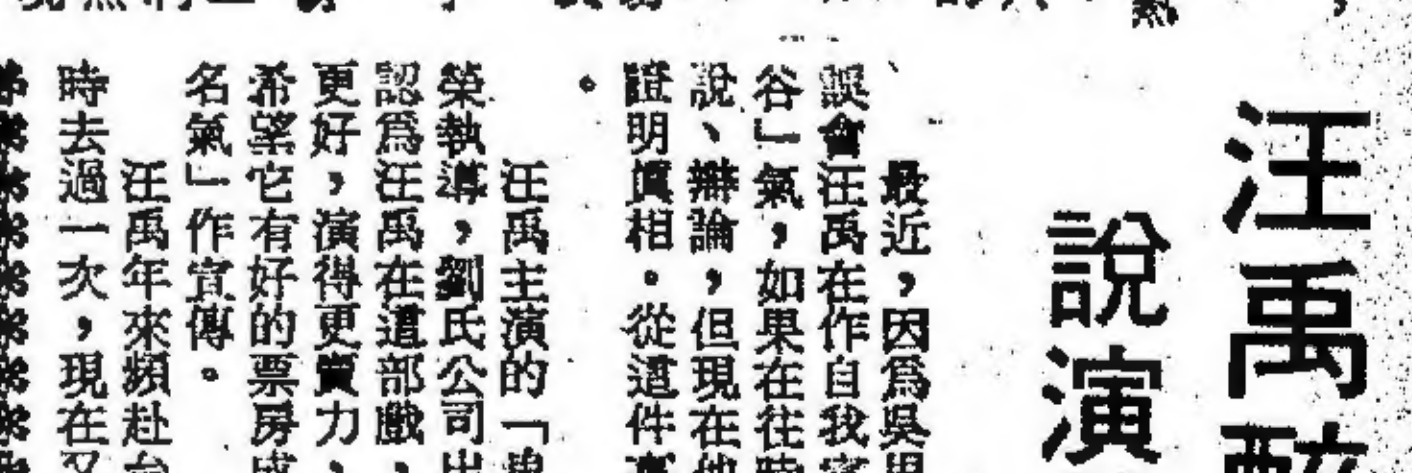 汪禹
說演
最近，因爲吳思
誤會汪禹在作自我宣
谷」氣，如果在往時
說、辯論，但現在他
證明眞相。從這件事
。
汪禹主演的「
榮執導，劉氏公司出
認爲汪禹在這部戲，
更好，演得更賣力，
希望它有好的票房成
名氣」作宣傳。
汪禹年來頻赴台
時去過一次，現在又